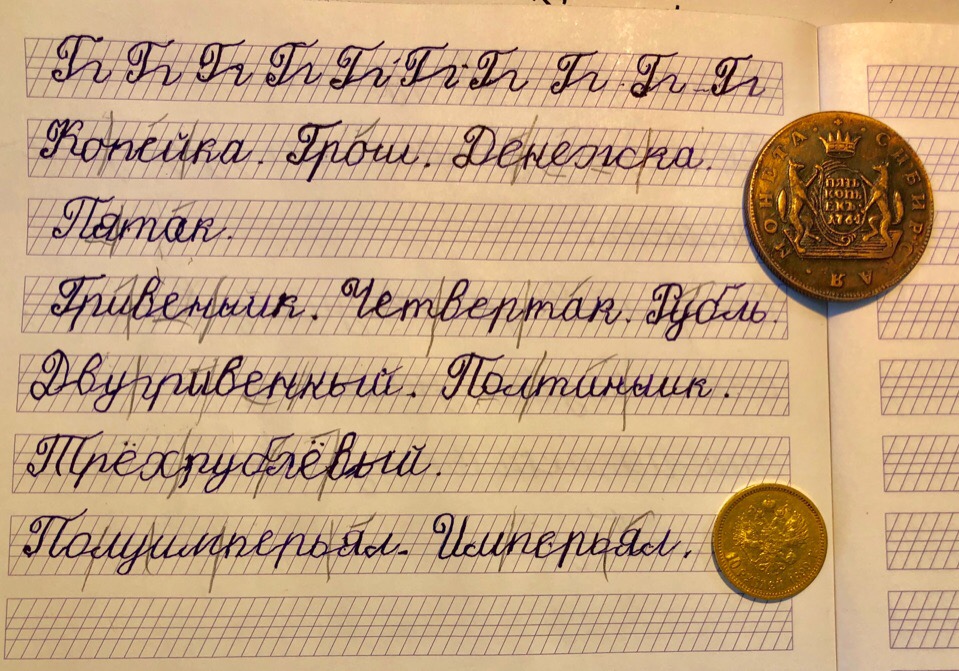 Гг Гг Гг Гг Гг Гг Гг Гг Гг Гг
Копейка. Грош. Денежка.
Пятак.
Гривенник. Четвертак. Рубль.
Двугривенный. Полтинник.
Трёхрублёвый.
Полуимперьял. Имперьял.
МОНЕТА СИБИРСКАЯ
ПЯТЬ
КОПѢ
ЕКЪ
1764
10 РУБЛЕЙ